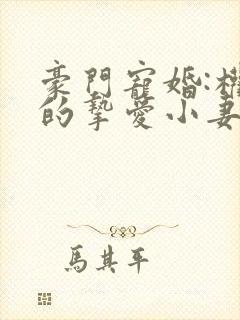 豪門寵婚:
的摯愛小妻
馬其平